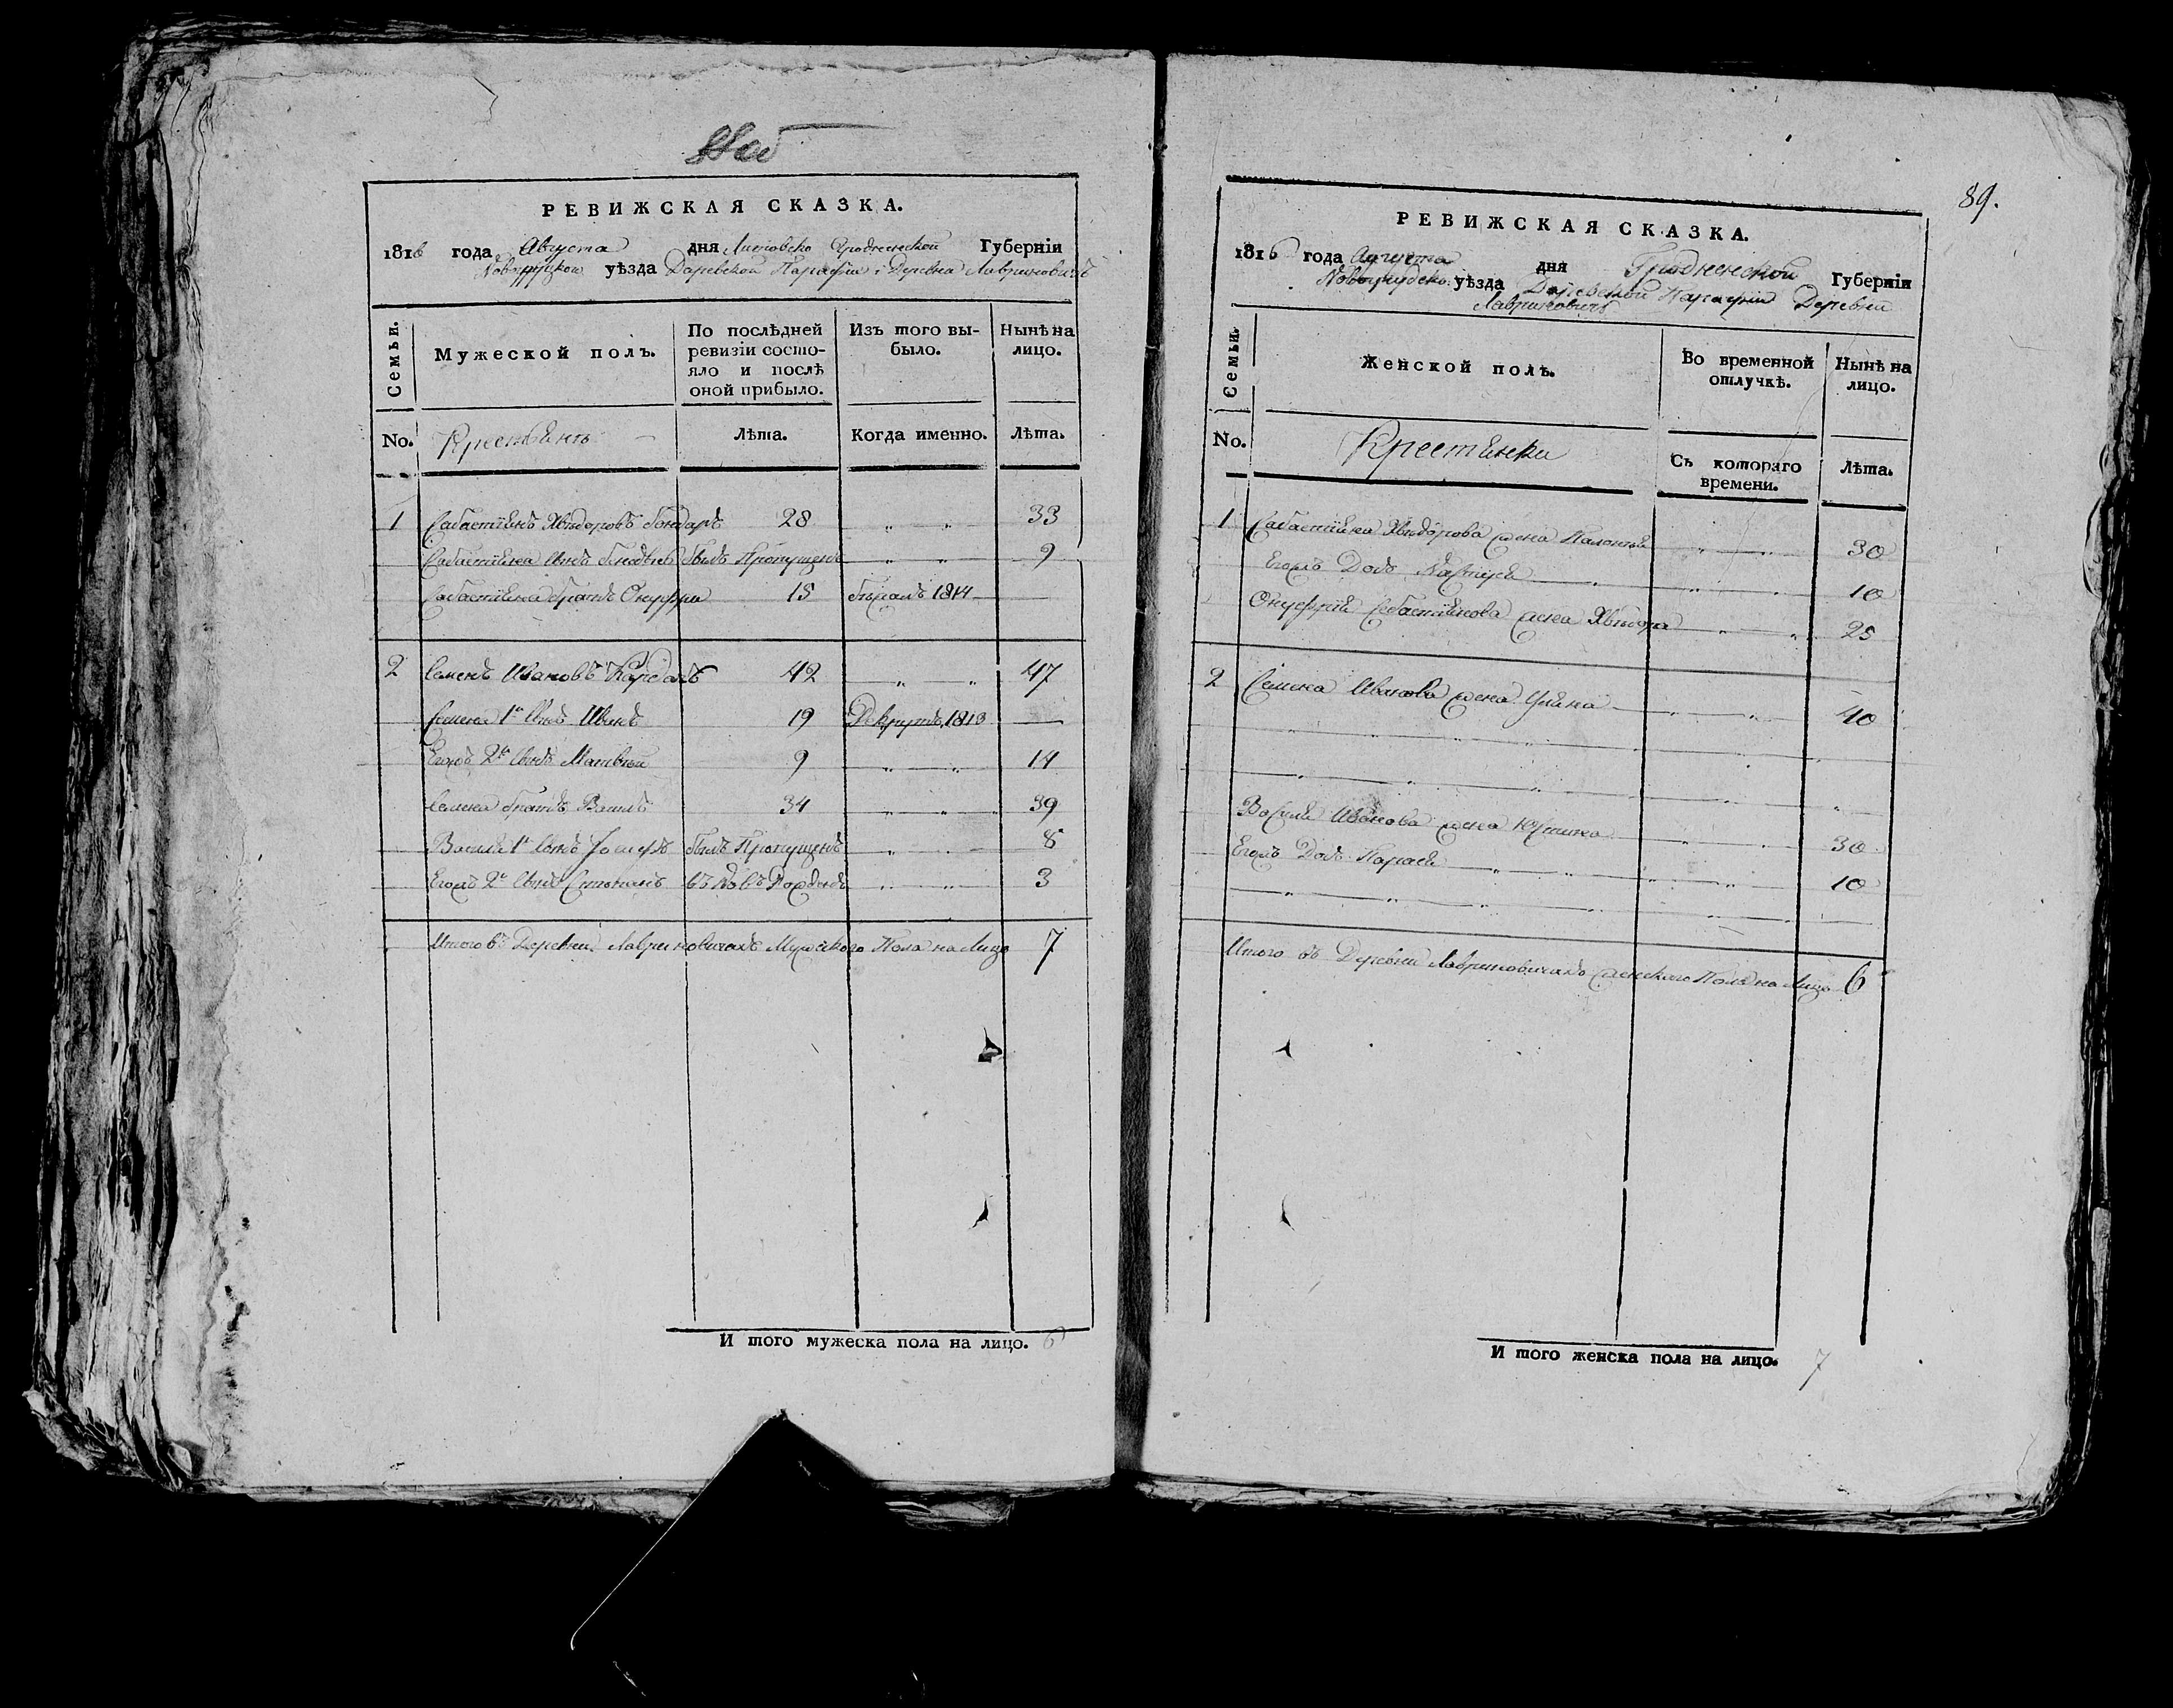 РЕВИЖСКАЯ СКАЗКА.
1816 года Августа дня Литовско Гродненской Губерніи
Новогрудской уѣзда Даревской Парафіи і Деревна Лавриновичъ
Семьи.
Мужеской полъ.
По послѣдней ревизіи состо-
яло и послѣ
оной прибыло.
Изъ того вы-
было.
Нынѣ на
лицо.
No. Крестьянъ Лѣта. Когда именно. Лѣта.
1 Сабастіянъ Хвядоровъ Бондаръ 28 " " 33
Сабастіяна Сынъ былъ Пропущенъ " " 9
Сабастіяна братъ Онуфри 15 1814
2 Семенъ Ивановъ 42 " " 47
Семена 1й Сынъ Иванъ 19 1813
Егожъ 2й Сынъ Матвѣй 9 " " 14
Семена братъ Василь 34 " " 39
Васили 1й Сынъ Іосифъ былъ Пропущенъ " " 8
Егожъ 2й Сынъ Степанъ " " 3
Итого въ Деревни Лавриновичахъ Мужеского Пола на Лицо 7
И того мужеска пола на лицо. 6
89.
РЕВИЖСКАЯ СКАЗКА.
1816 года Августа дня Гродненской Губерніи
Новогрудско уѣзда Даревской Парафіи Деревни
Лавриновичъ
Семьи.
Женской полъ.
Во временной
отлучкѣ.
Нынѣ на
лицо.
No. Крестянки
Съ котораго
времени.
Лѣта.
1 Сабастіяна Хвядорова жена " " 30
Егожъ Дочь " " 10
Онуфрій Себастіянова жена Хвядора " " 25
2 Семена Иванова жена Уляна " " 40
Василя Иванова жена Юстина " " 30
Егожъ Дочь " " 10
Итого въ Деревни Лавриновичахъ женского Пола на Лицо 6
И того женска пола на лицо. 7